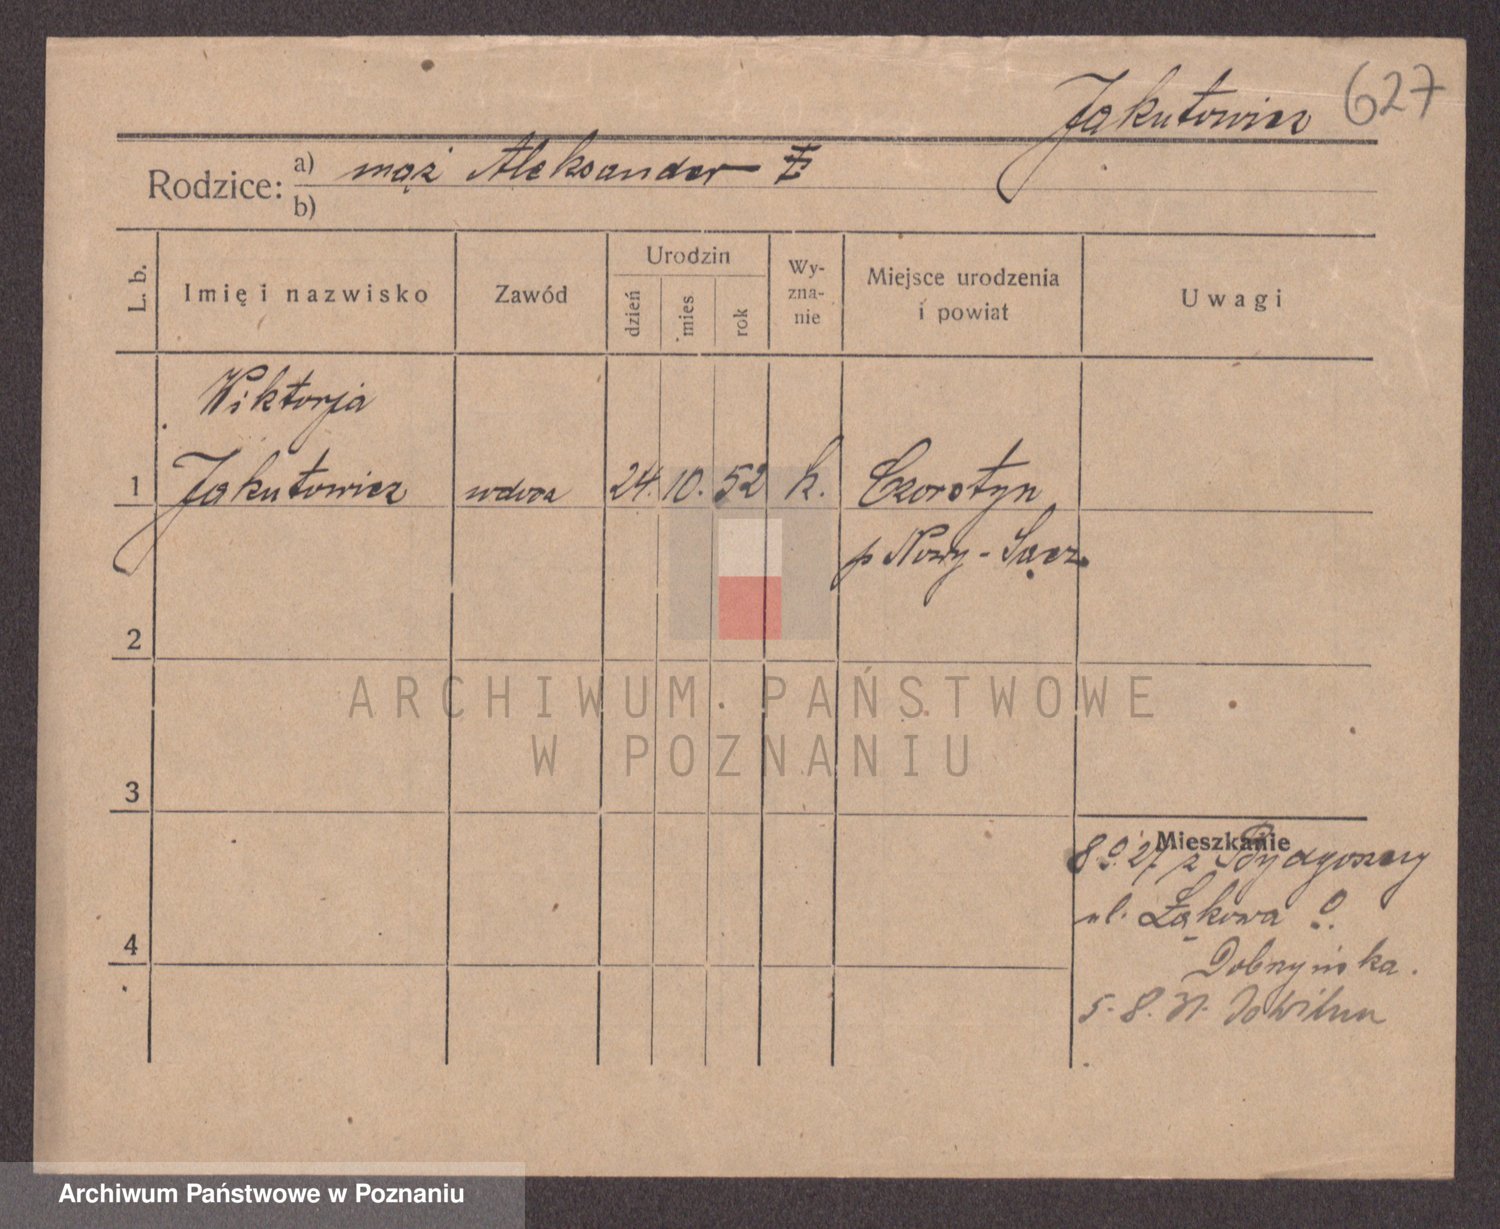 627
Jakutowicz
Rodzice: a) mąż Aleksander
b)
L. b. Imię i nazwisko Zawód Urodzin dzień mies. rok Wy-zna-nie Miejsce urodzenia i powiat Uwagi
Wiktorja
1 Jakutowicz wdowa 24. 10. 52 k. Czorsztyn
p Nowy-Sącz
2
ARCHIWUM PAŃSTWOWE
W POZNANIU
3
Mieszkanie
27 z Bydgoszczy
ul. Łąkowa 9.
Dobrzyńska.
5.8.31. do Wilna
4
Archiwum Państwowe w Poznaniu